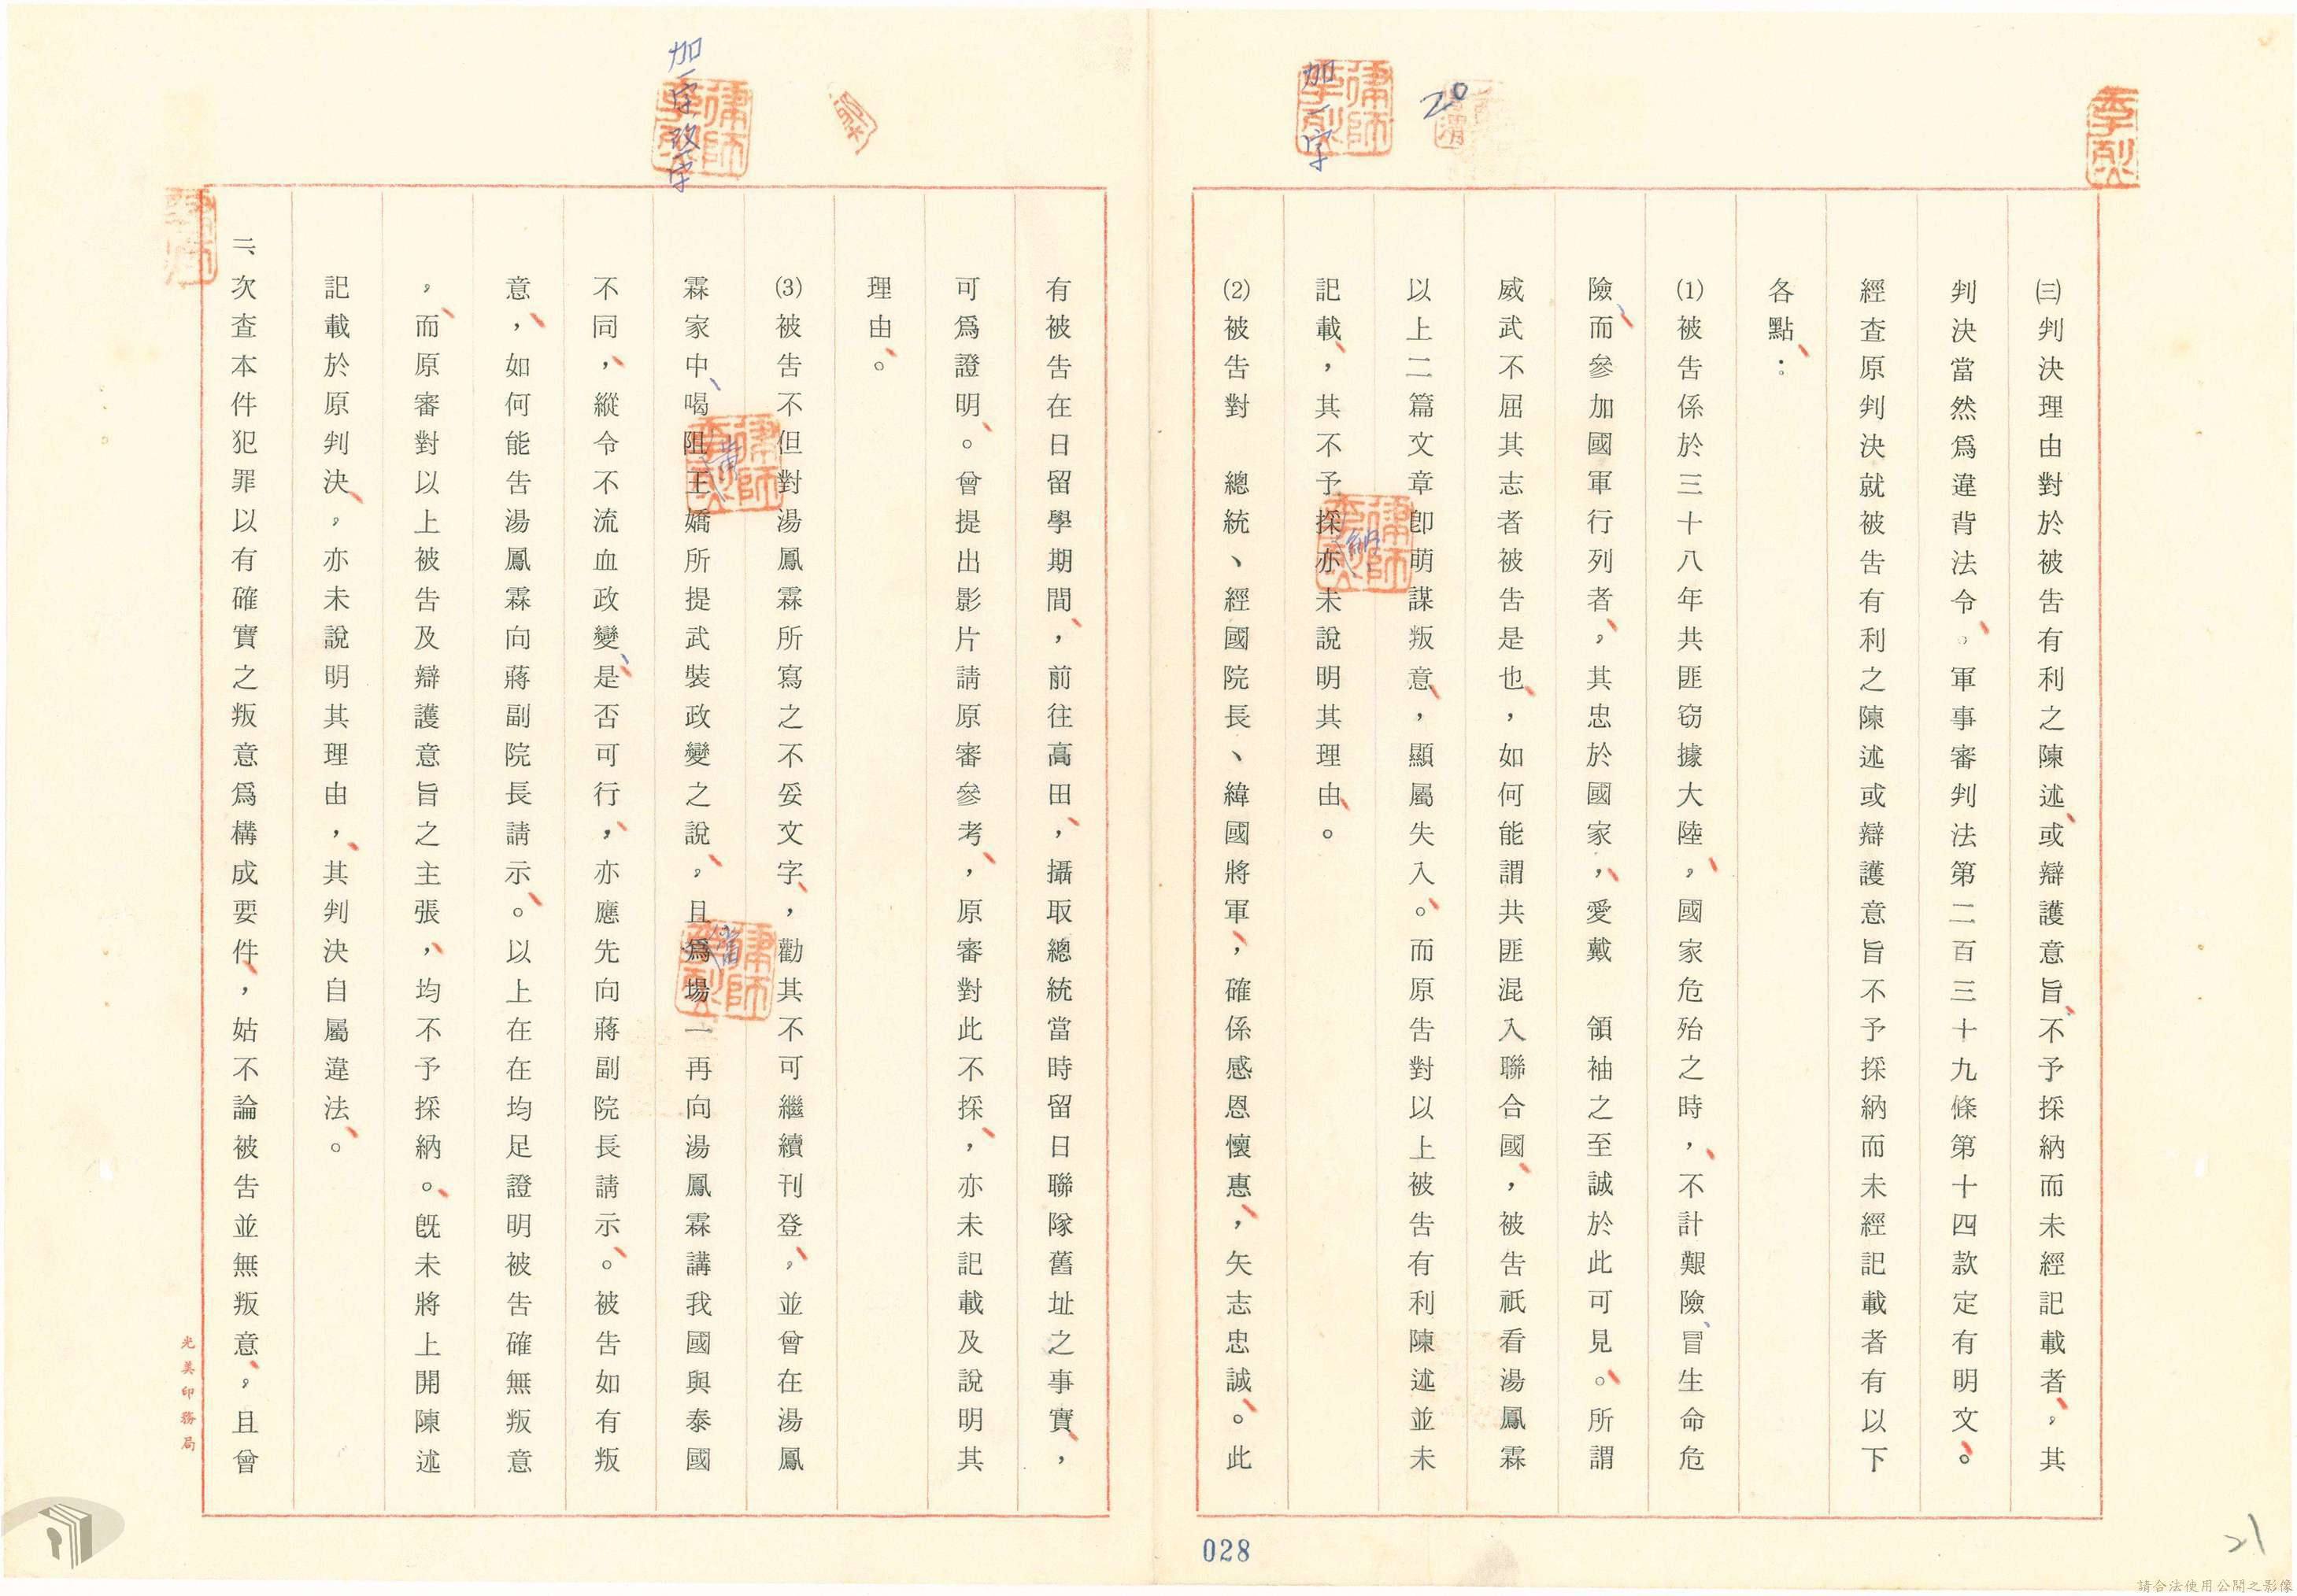 加一字
20
李烈
律師
㈢判決理由對於被告有利之陳述、或辯護意旨、不予採納而未經記載者、，其
判決當然爲違背法令、。軍事審判法第二百三十九條第十四款定有明文、。
經查原判決就被告有利之陳述或辯護意旨不予採納而未經記載者有以下
各點、：
⑴被告係於三十八年共匪窃據大陸、，國家危殆之時、，不計艱險、冒生命危
險、而參加國軍行列者、，其忠於國家、，愛戴　領袖之至誠於此可見、。所謂
威武不屈其志者被告是也、，如何能謂共匪混入聯合國、，被告祇看湯鳳霖
以上二篇文章卽萌謀叛意、，顯屬失入、。而原告對以上被告有利陳述並未
記載、，其不予採納亦未說明其理由、。
⑵被告對　總統、經國院長、緯國將軍、，確係感恩懷惠、，矢志忠誠、。此
028
21
加一字改一字
律師
有被告在日留學期間、，前往高田、，攝取總統當時留日聯隊舊址之事實、，
可爲證明、。曾提出影片請原審參考、，原審對此不採、，亦未記載及說明其
理由、。
⑶被告不但對湯鳳霖所寫之不妥文字、，勸其不可繼續刊登、，並曾在湯鳳
霖家中、喝阻王嬌所提武裝政變之說、，且爲當場一再向湯鳳霖講我國與泰國
不同、，縱令不流血政變、是否可行、，亦應先向蔣副院長請示、。被告如有叛
意、，如何能告湯鳳霖向蔣副院長請示、。以上在在均足證明被告確無叛意
，、而原審對以上被告及辯護意旨之主張、，均不予採納、。旣未將上開陳述
記載於原判決、，亦未說明其理由、，其判決自屬違法、。
二、次查本件犯罪以有確實之叛意爲構成要件、，姑不論被告並無叛意、，且曾
光美印務局
請合法使用公開之影像